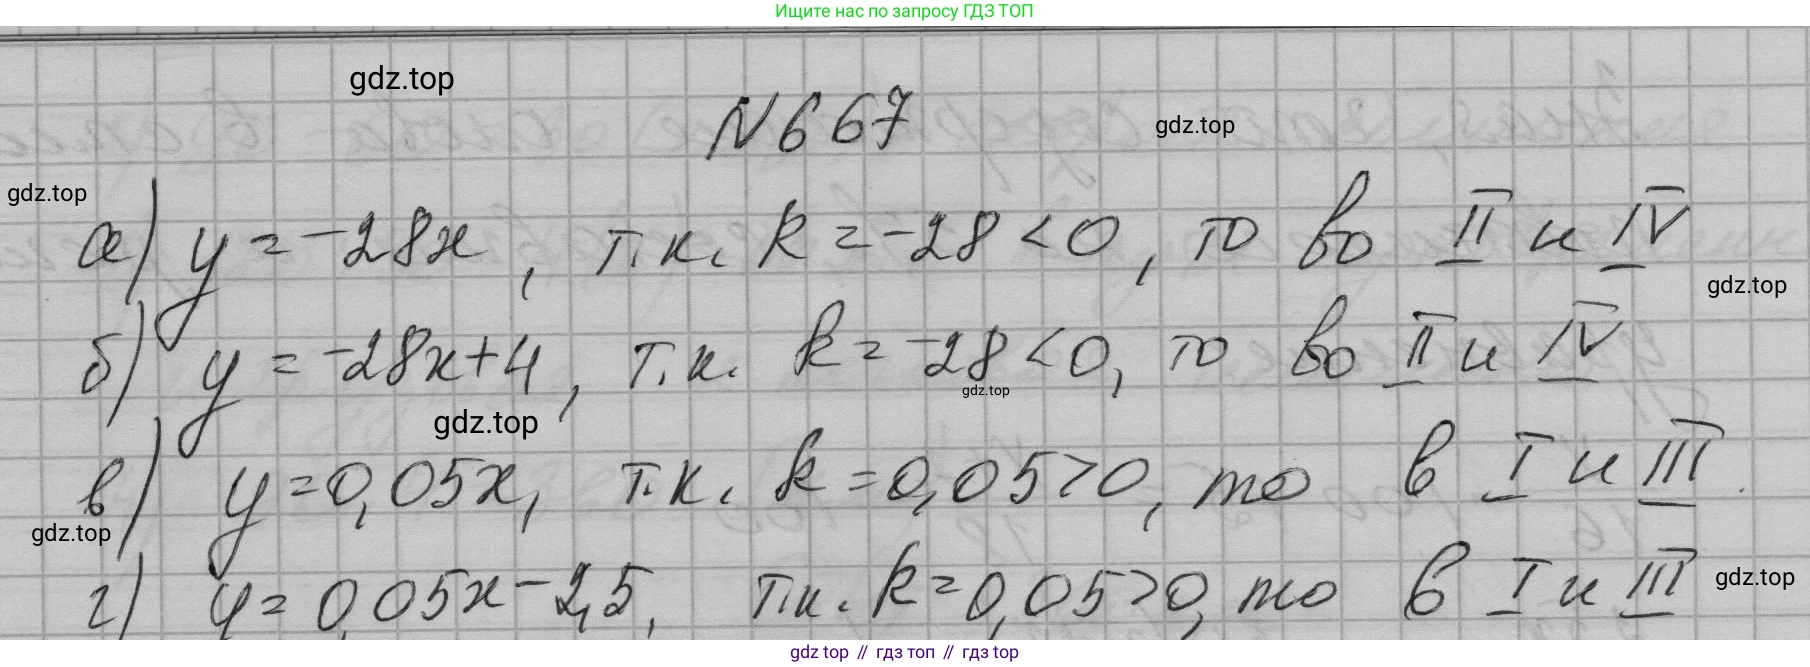 Ищите нас по запросу ГДЗ ТОП
gdz.top
N 667
gdz.top
gdz.top
а) y = -28x, т.к. k = -28 < 0, то во II и IV
gdz.top
б) y = -28x+4, т.к. k = -28 < 0, то во II и IV
gdz.top
gdz.top
в) y = 0,05x, т.к. k = 0,05 > 0, то в I и III.
gdz.top
г) y = 0,05x - 2,5, т.к. k = 0,05 > 0, то в I и III
gdz.top
gdz top // гдз топ // гдз top